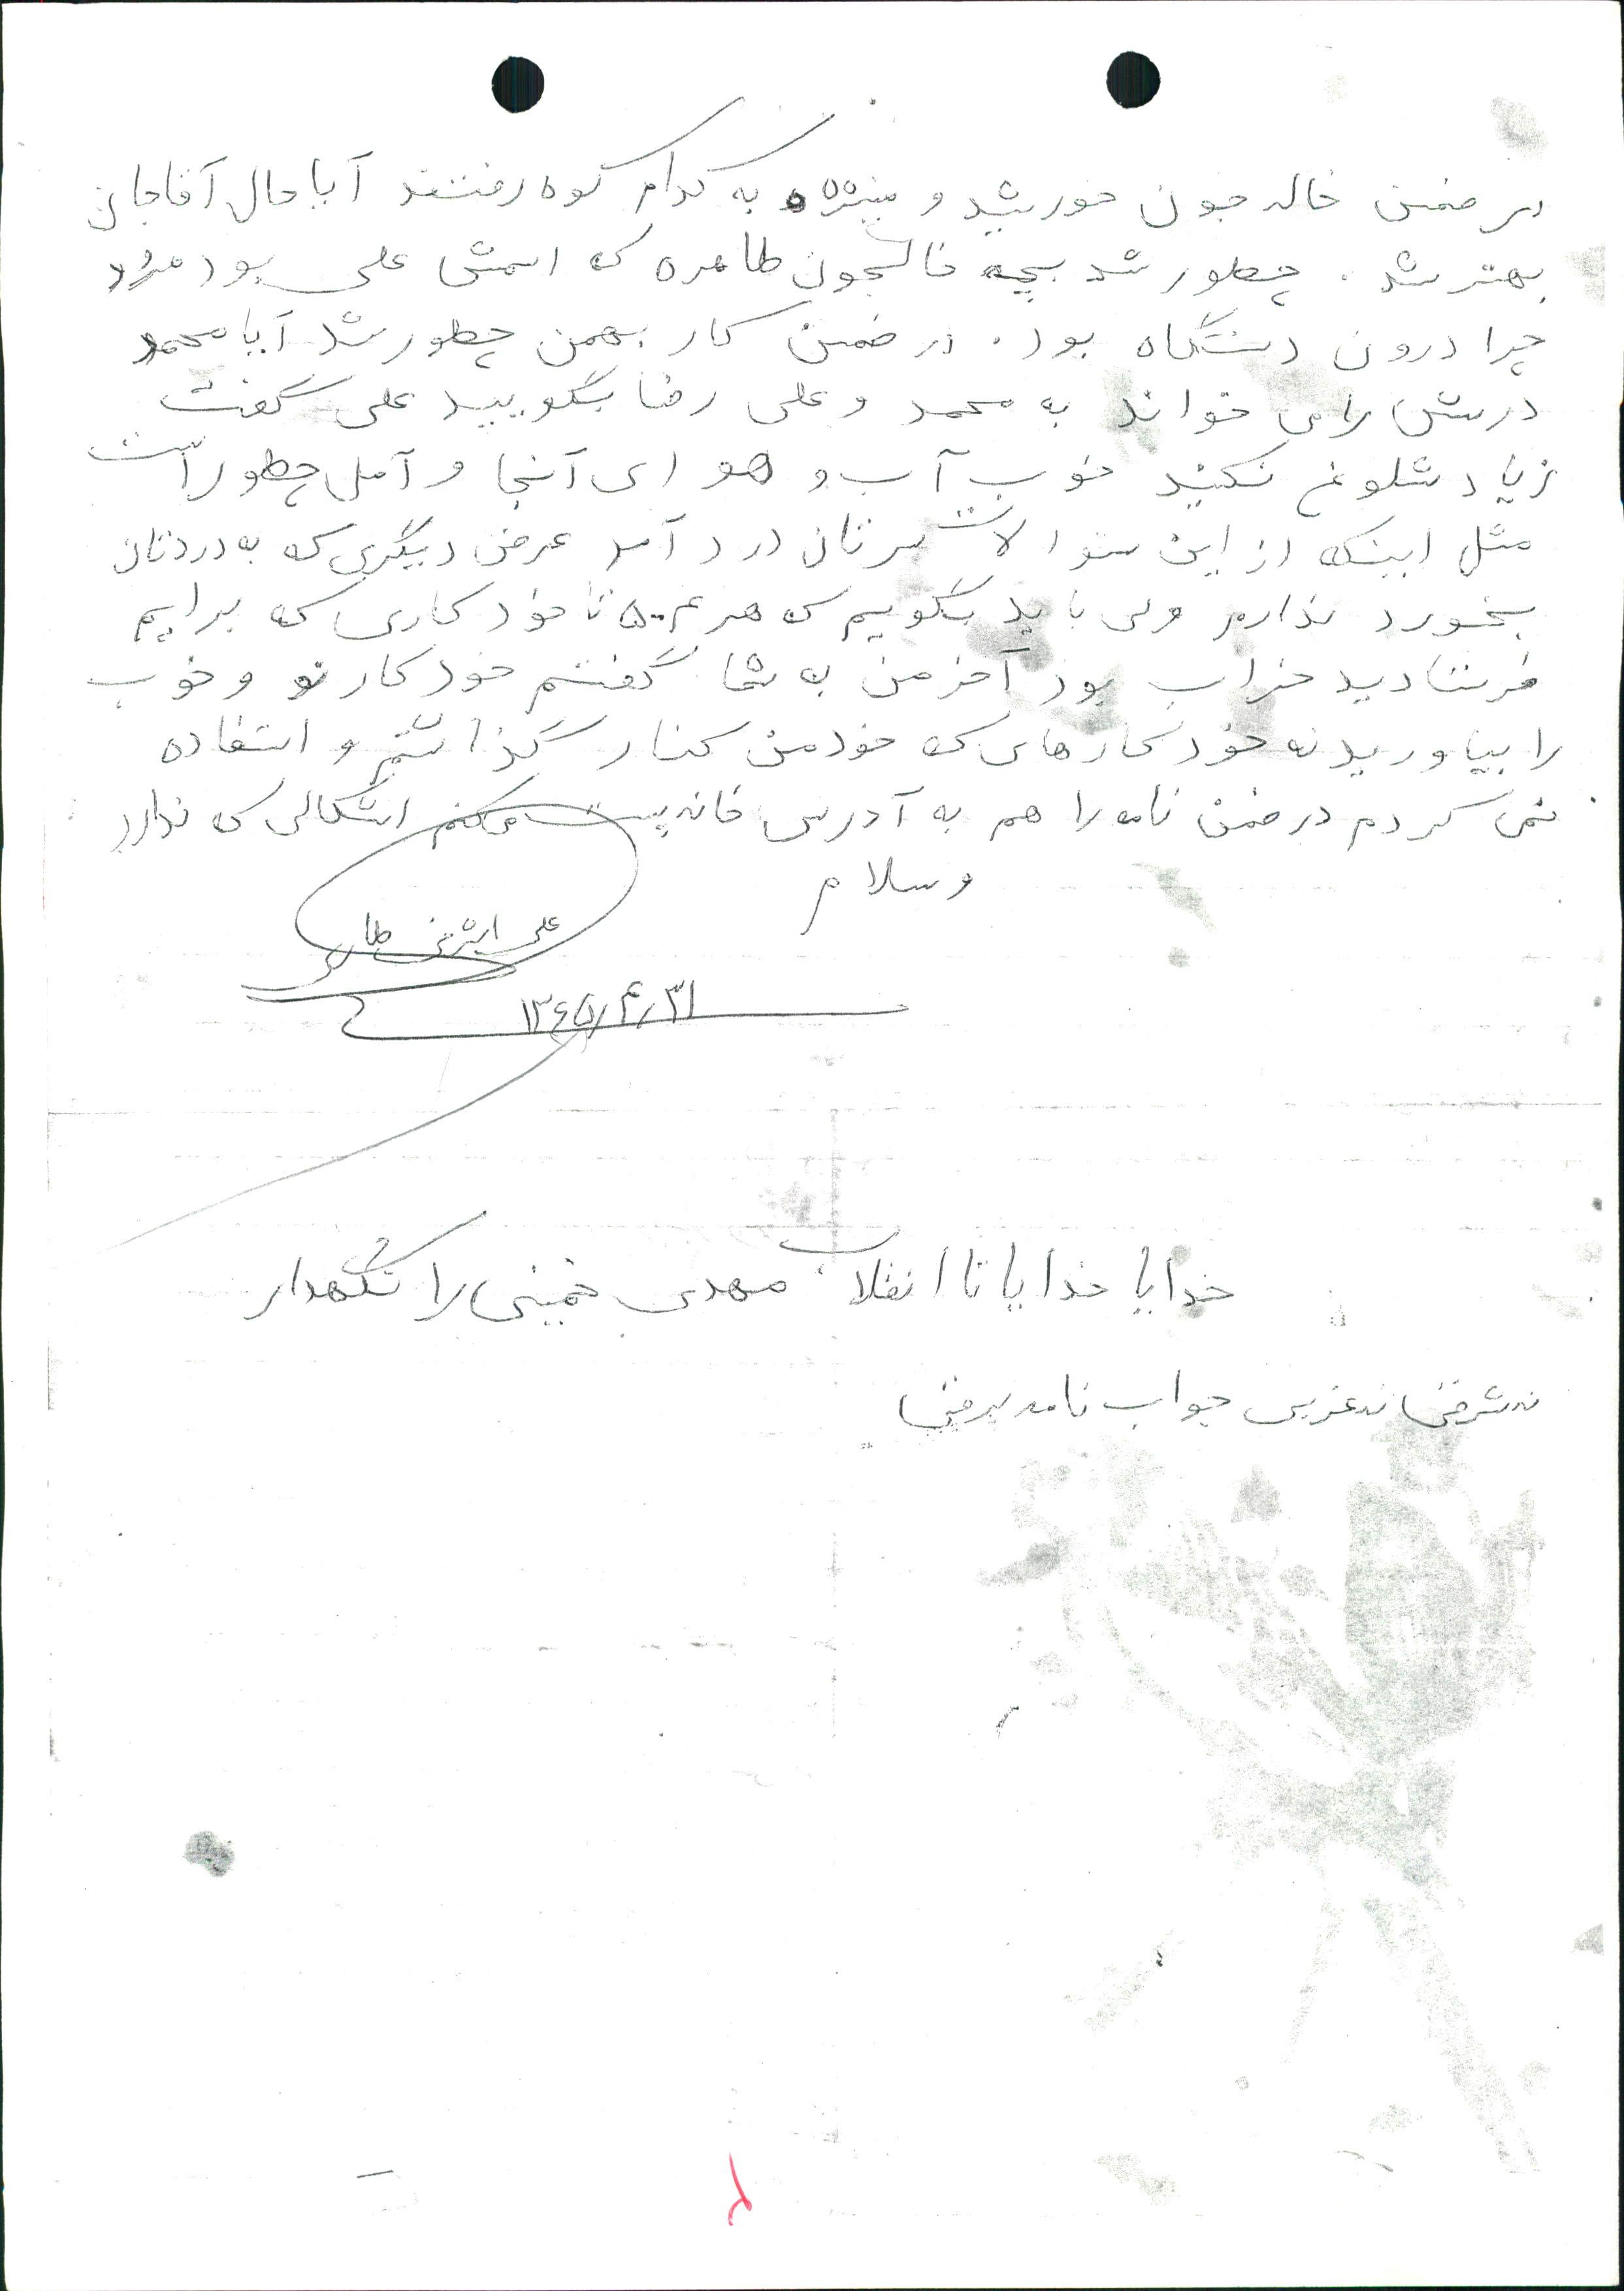 در ضمن خاله جون خورشید و بنیژه به کدام کوه رفتند آیا حال آقاجان
بهتر شد . چطور شد بچه خالجون طاهره که اسمش علی بود مرد
چرا درون دستگاه بود . در ضمن کار بهمن چطور شد آیا محمد
درسش را می خواند به محمد و علی رضا بگویید علی گفت
زیاد شلوغ نکنید خوب آب و هوای آنجا و آمل چطور است
مثل اینکه از این سئوالات سرتان درد آمد عرض دیگری که به دردتان
بخورد ندارم ولی باید بگویم که هر ۵۰۰ تا خودکاری که برایم
فرستادید خراب بود آخر من به شما گفتم خودکار نو و خوب
را بیاورید نه خودکارهای که خود من کنار گذاشتم و استفاده
نمی کردم در ضمن نامه را هم به آدرس خانه پست میکنم اشکالی که ندارد
وسلام
علی
۱۳۶۵/۴/۳۱
خدایا خدایا تا انقلاب مهدی خمینی را نگهدار
نه شرقی نه غربی جواب نامه برقی
۲